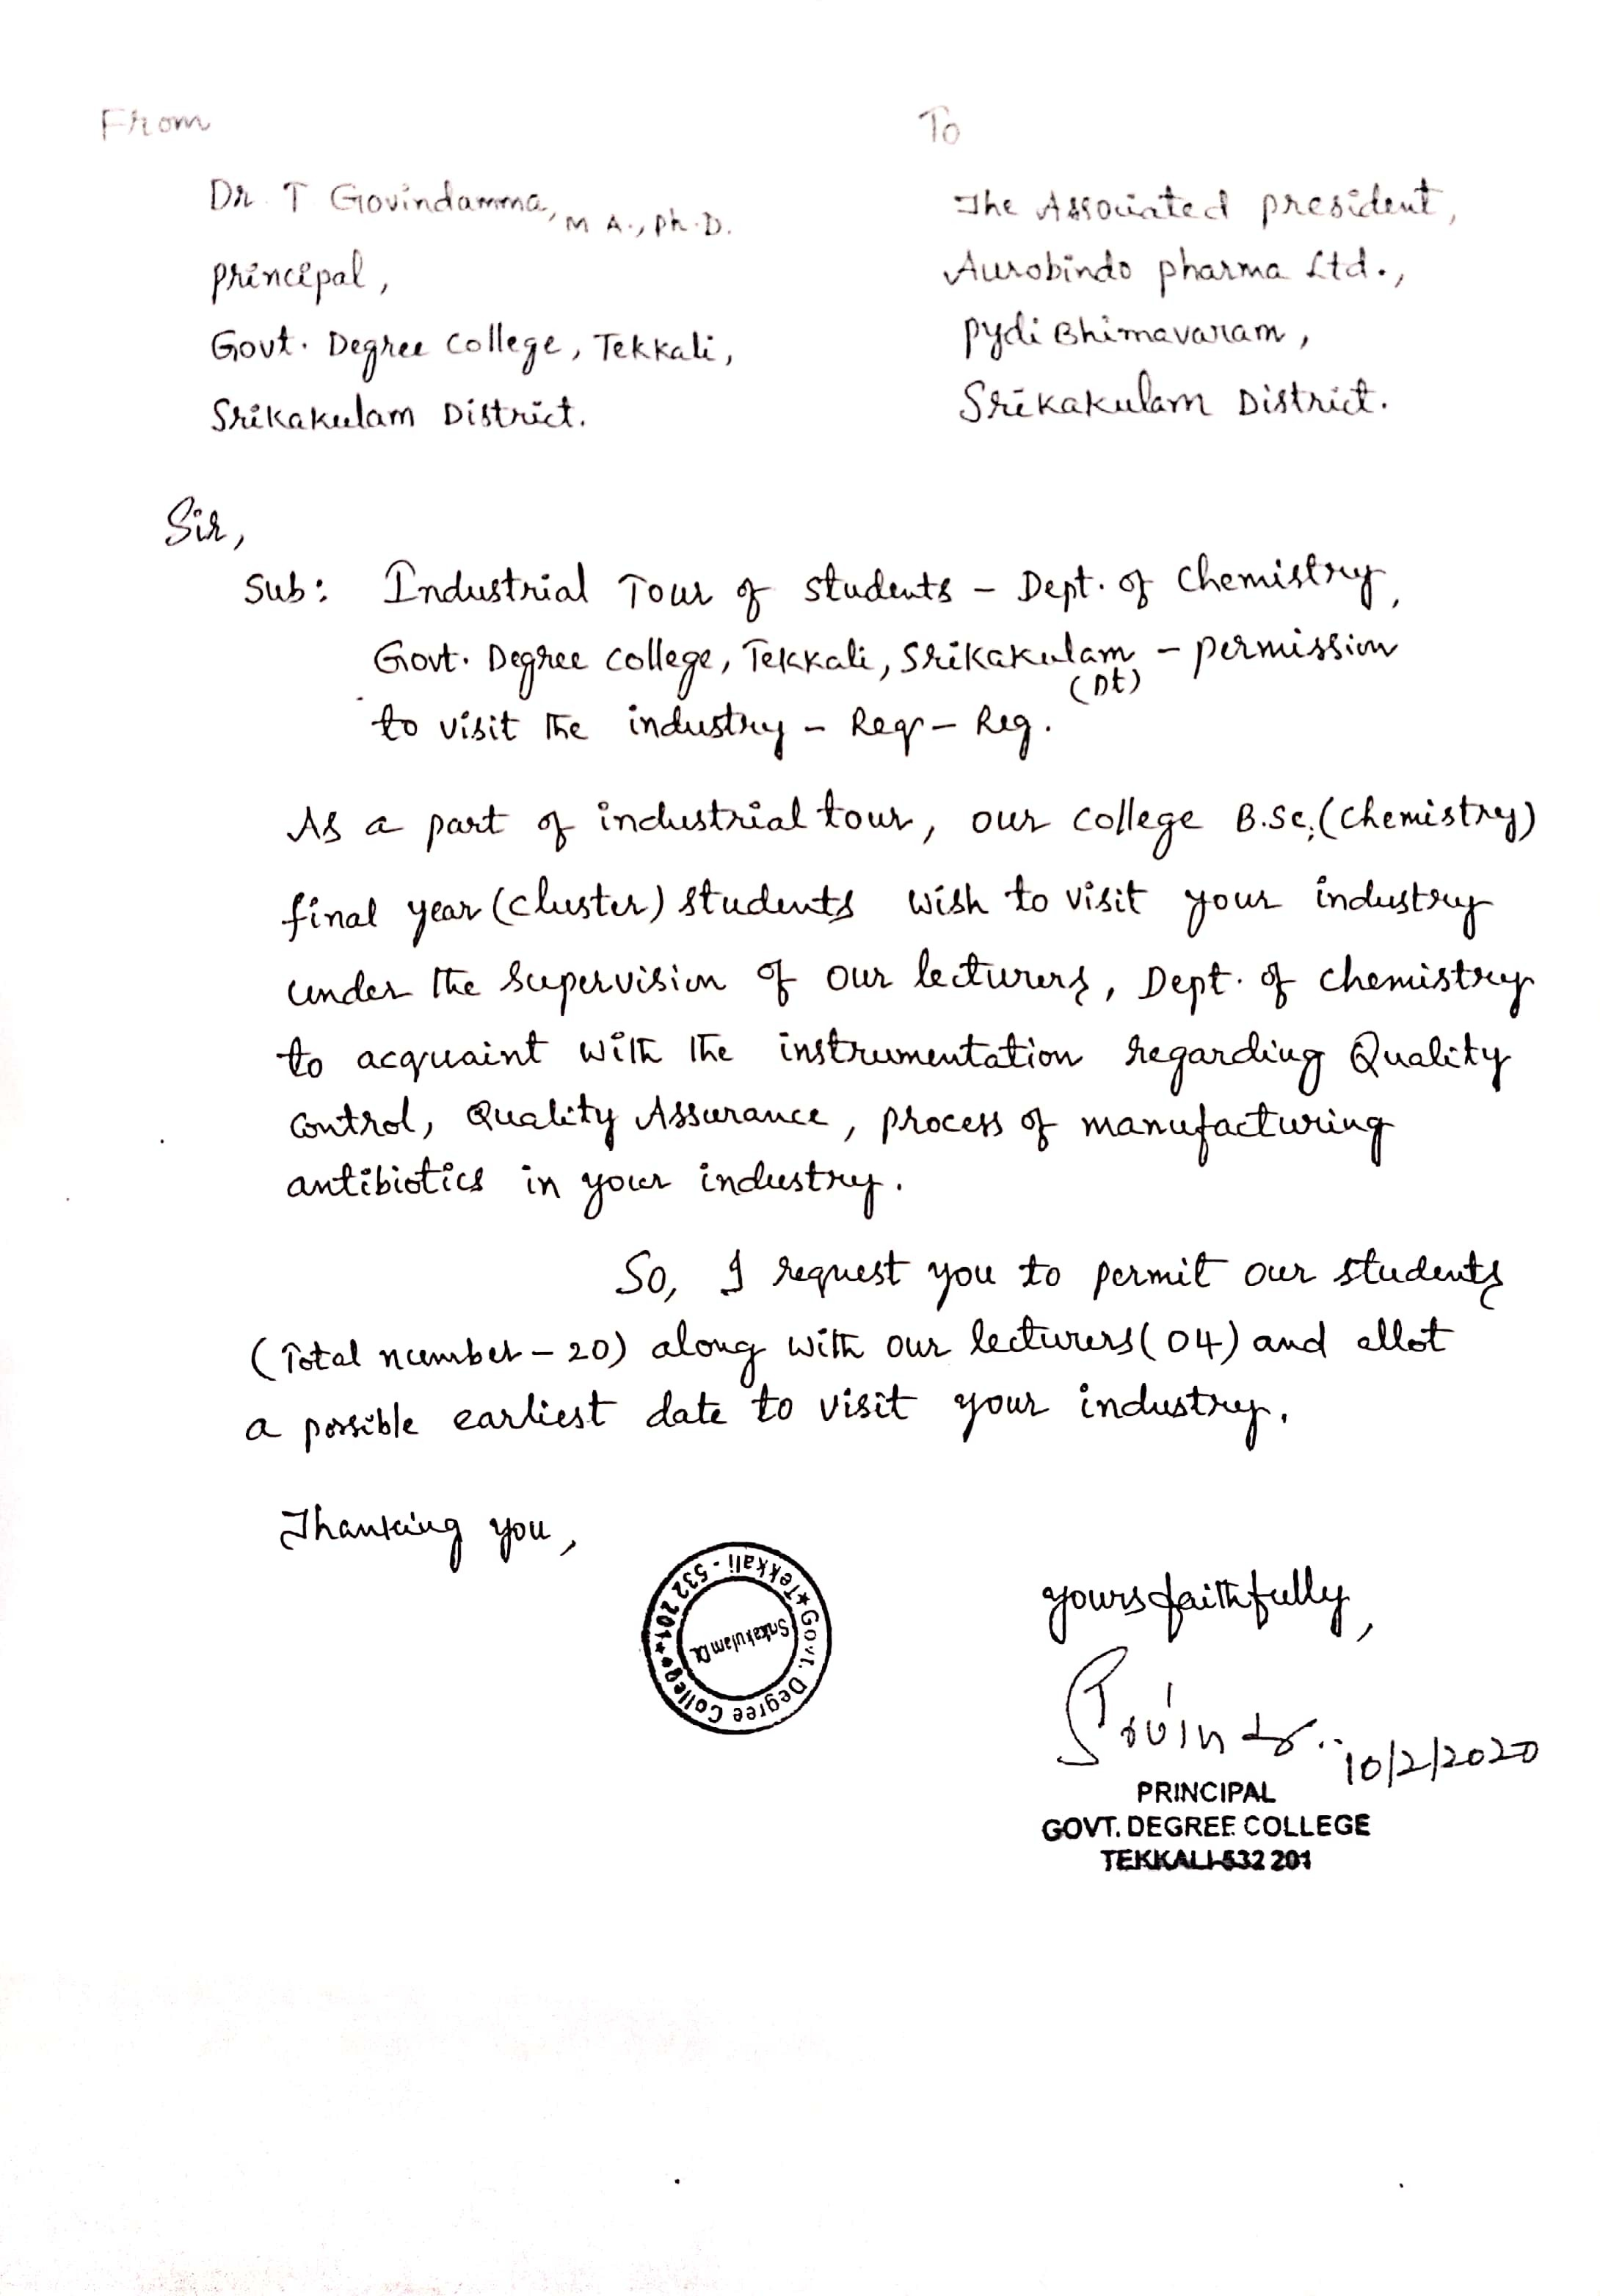 From
Dr. T Govindamma, M A., Ph.D.
Principal,
Govt. Degree College, Tekkali,
Srikakulam District.
To
The Associated president,
Aurobindo pharma Ltd.,
Pydi Bhimavaram,
Srikakulam District.
Sir,
Sub: Industrial Tour of students - Dept. of Chemistry,
Govt. Degree College, Tekkali, Srikakulam (Dt) - permission
to visit the industry - Req - Reg.
As a part of industrial tour, our college B.Sc; (Chemistry)
final year (cluster) students wish to visit your industry
under the supervision of our lecturers, Dept. of chemistry
to acquaint with the instrumentation regarding Quality
Control, Quality Assurance, process of manufacturing
antibiotics in your industry.
So, I request you to permit our students
(Total number - 20) along with our lecturers (04) and allot
a possible earliest date to visit your industry.
Thanking you,
Govt. Degree College
★ Tekkali - 532 201 ★
Srikakulam Dt.
yours faithfully,
10/2/2020
PRINCIPAL
GOVT. DEGREE COLLEGE
TEKKALI-532 201